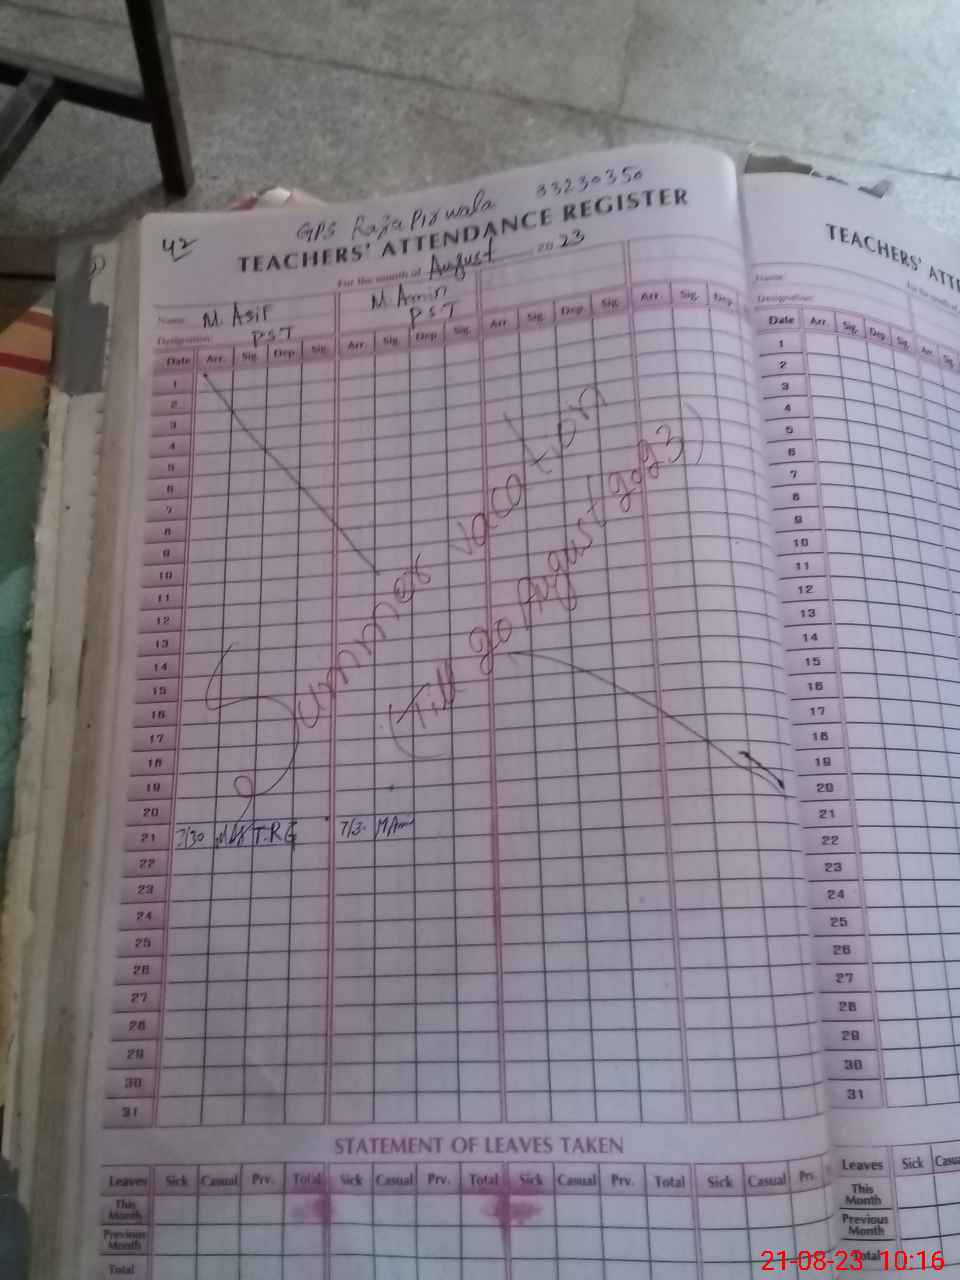 42
GPS Raja Pirwala 33230350
TEACHERS' ATTENDANCE REGISTER
For the month of August 2023
Name: M. Asif M. Amin
Designation: PST PST
Date Arr. Sig. Dep. Sig. Arr. Sig. Dep. Sig. Arr. Sig. Dep. Sig. Arr. Sig. Dep.
1
2
3
4
5
6
7
8
9
10
11
12
13
14
15
16
17
18
19
20
21 7/30 T.RG 7/3.
22
23
24
25
26
27
28
29
30
31
Summer vacation
(Till 20 August 2023)
STATEMENT OF LEAVES TAKEN
Leaves Sick Casual Prv. Total Sick Casual Prv. Total Sick Casual Prv. Total Sick Casual Prv.
This Month
Previous Month
Total
TEACHERS' ATT
Name:
Designation:
Date Arr. Sig. Dep. Sig. Arr. Sig.
1
2
3
4
5
6
7
8
9
10
11
12
13
14
15
16
17
18
19
20
21
22
23
24
25
26
27
28
29
30
31
Leaves Sick Casua
This Month
Previous Month
Total
21-08-23 10:16